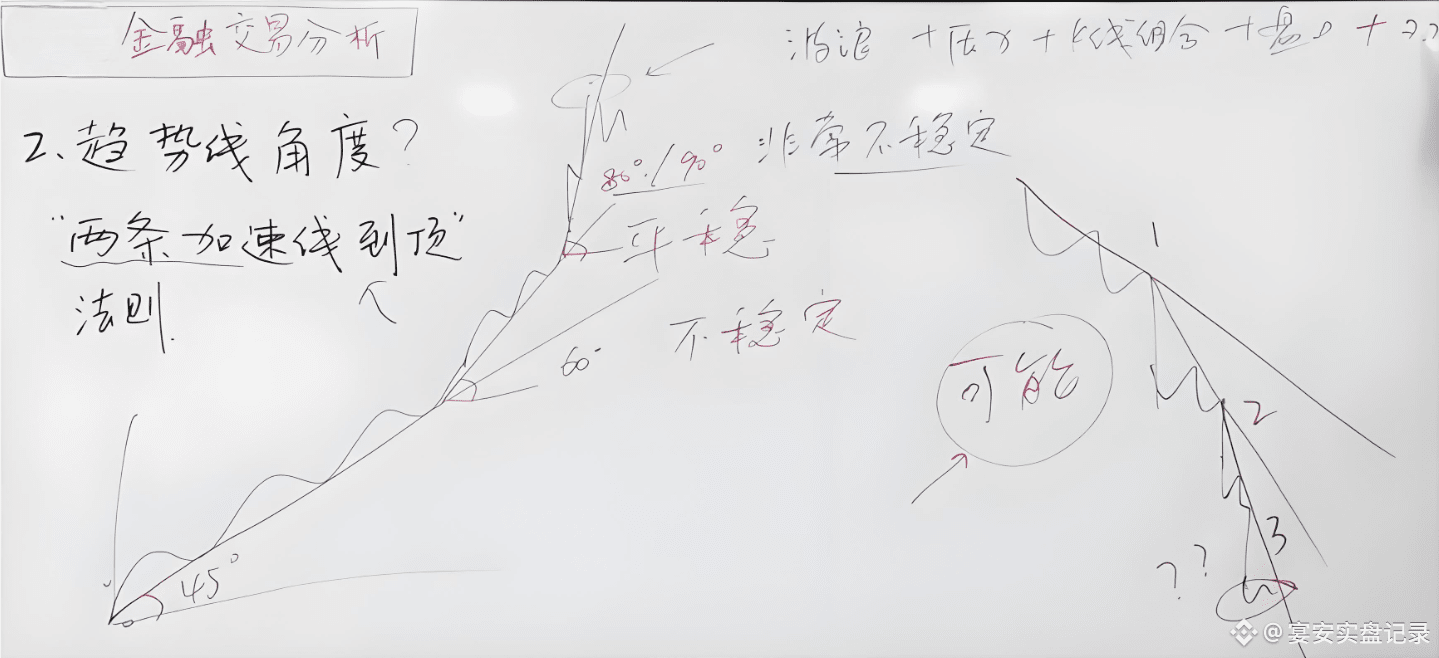 金融交易分析
波浪 + 压力 + K线组合 + 盘 +
2、趋势线角度?
“两条加速线到顶”
法则.
80°/90° 非常不稳定
平稳
60°
不稳定
45°
1
可能
2
3
??
@宴安实盘记录